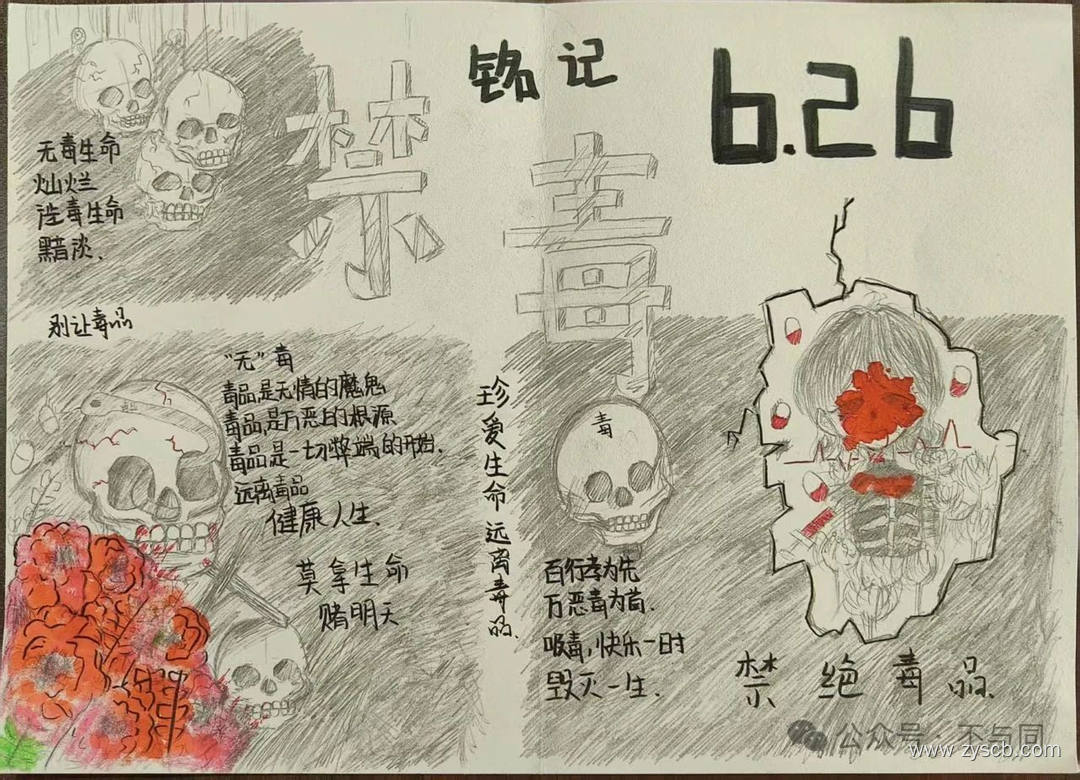 铭记
6.26
禁
毒
无毒生命
灿烂
涉毒生命
黯淡.
别让毒品
“无”毒
毒品是无情的魔鬼
毒品是万恶的根源
毒品是一切弊端的开始.
远离毒品
健康人生.
莫拿生命
赌明天
珍爱生命远离毒品.
毒
百行孝为先
万恶毒为首.
吸毒,快乐一时
毁灭一生.
禁绝毒品.
公众号·不与同
www.zyscb.com